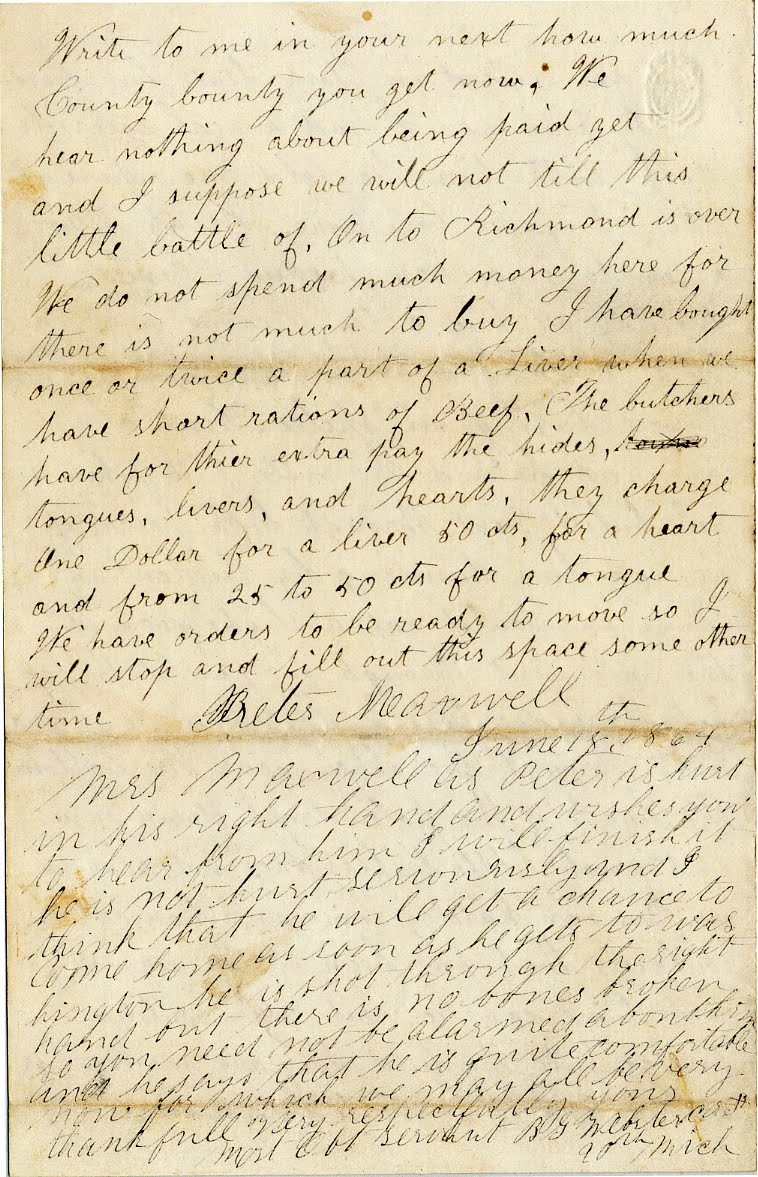 Write to me in your next how much
County bounty you get now. We
hear nothing about being paid yet
and I suppose we will not till this
little battle of, On to Richmond is over
We do not spend much money here for
there is not much to buy I have bought
once or twice a part of a Liver when we
have short rations of Beef. The butchers
have for thier extra pay the hides,
tongues, livers, and hearts, they charge
One Dollar for a liver 50 cts, for a heart
and from 25 to 50 cts for a tongue
We have orders to be ready to move so I
will stop and fill out this space some other
time Peter Maxwell
June 18th 1864
Mrs Maxwell as Peter is hurt
in his right hand and wishes you
to hear from him I will finish it
he is not hurt seriourisly and I
think that he will get a chance to
come home as soon as he gets to was
hington he is shot through the right
hand but there is no bones broken
so you need not be alarmed about him
and he says that he is quite comfortable
now for which we may all be very
thankfull very respectfully your
most obt servant B F Webster
20th Mich